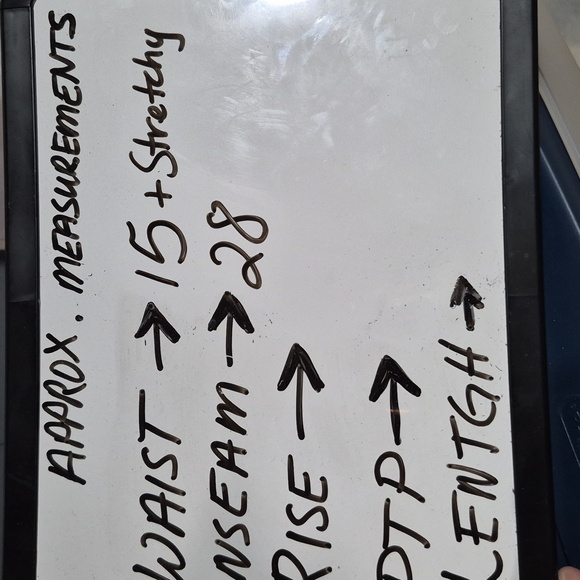 APPROX. MEASUREMENTS
WAIST → 15 + Stretchy
NSEAM → 28
RISE →
PTP →
LENTGH →